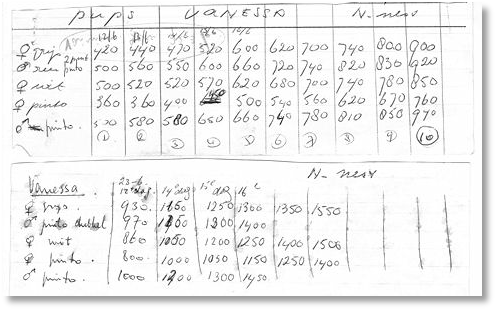 pups VANESSA N. ness
12/6 13/6 14/6
♀ grijs 420 440 470 520 600 620 700 740 800 900
♂ 500 560 550 600 660 720 740 820 830 920
♀ wit 500 520 520 570 620 680 700 740 780 850
♀ pinto 360 360 400 500 540 560 620 670 760
♂ pinto. 580 580 650 660 740 780 810 850 970
① ② ③ ④ ⑤ ⑥ ⑦ ⑧ ⑨ ⑩
N. ness
Vanessa. 23-6
♀ grijs 930. 1150 1250 1300 1350 1550
♂ pinto dubbel 970 1150 1300 1400
♀ wit 860 1050 1200 1250 1400 1500
♀ pinto. 800. 1000 1050 1150 1250 1400
♂ pinto. 1000 1200 1300 1450